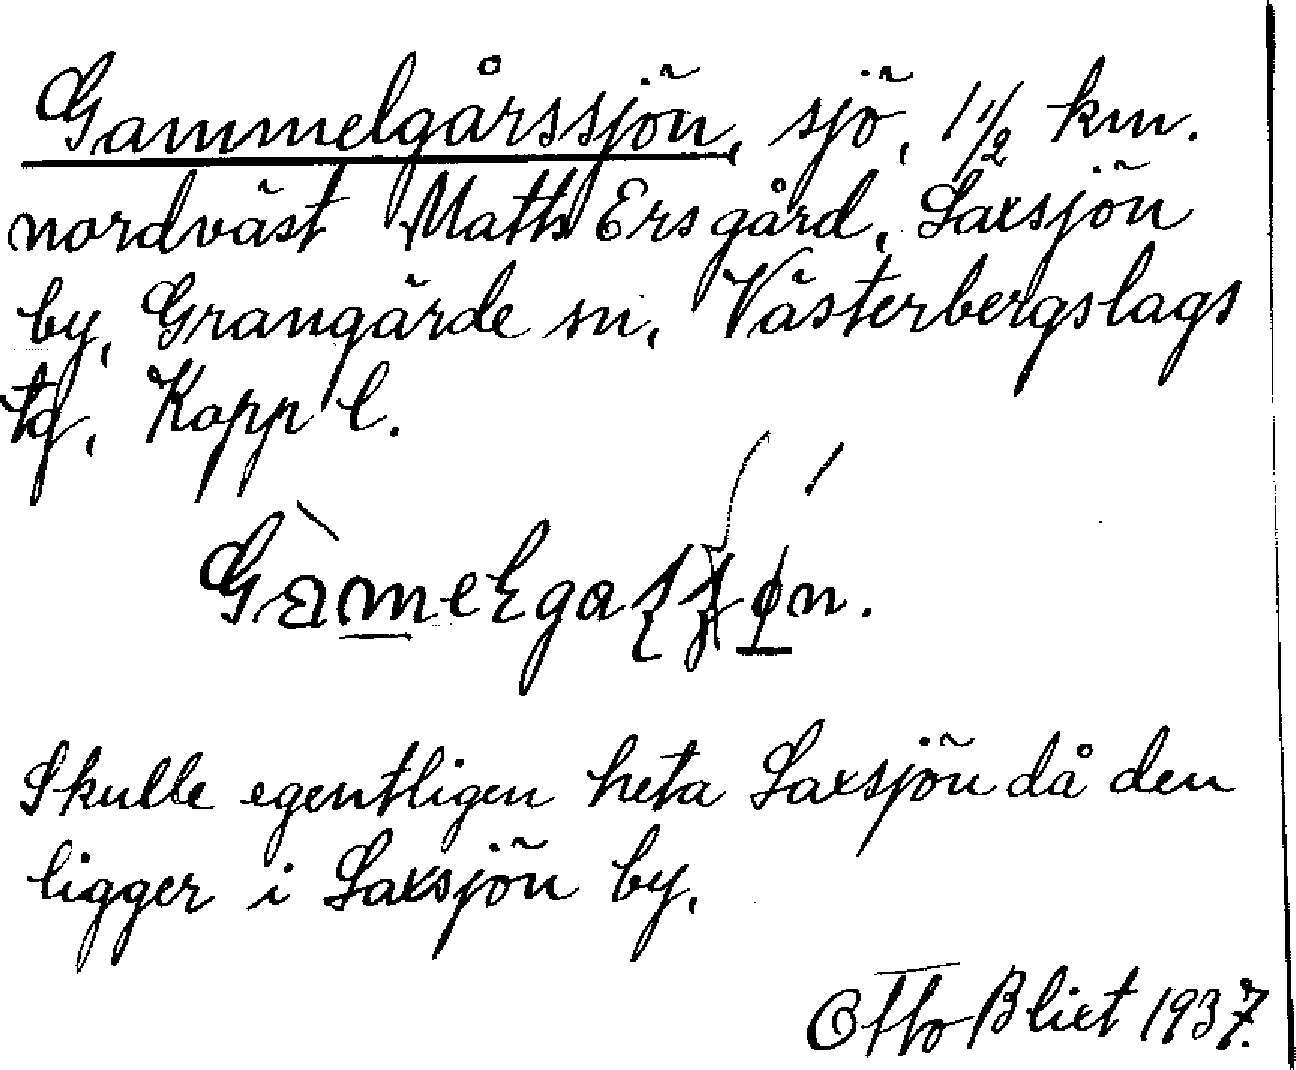 Gammelgårssjön, sjö, 1 1/2 km.
nordväst Matts Ersgård, Saxsjön
by, Grangärde sn, Västerbergslags
tg, Kopp l.
Skulle egentligen heta Saxsjön då den
ligger i Saxsjön by,
Otto Blixt 1937.